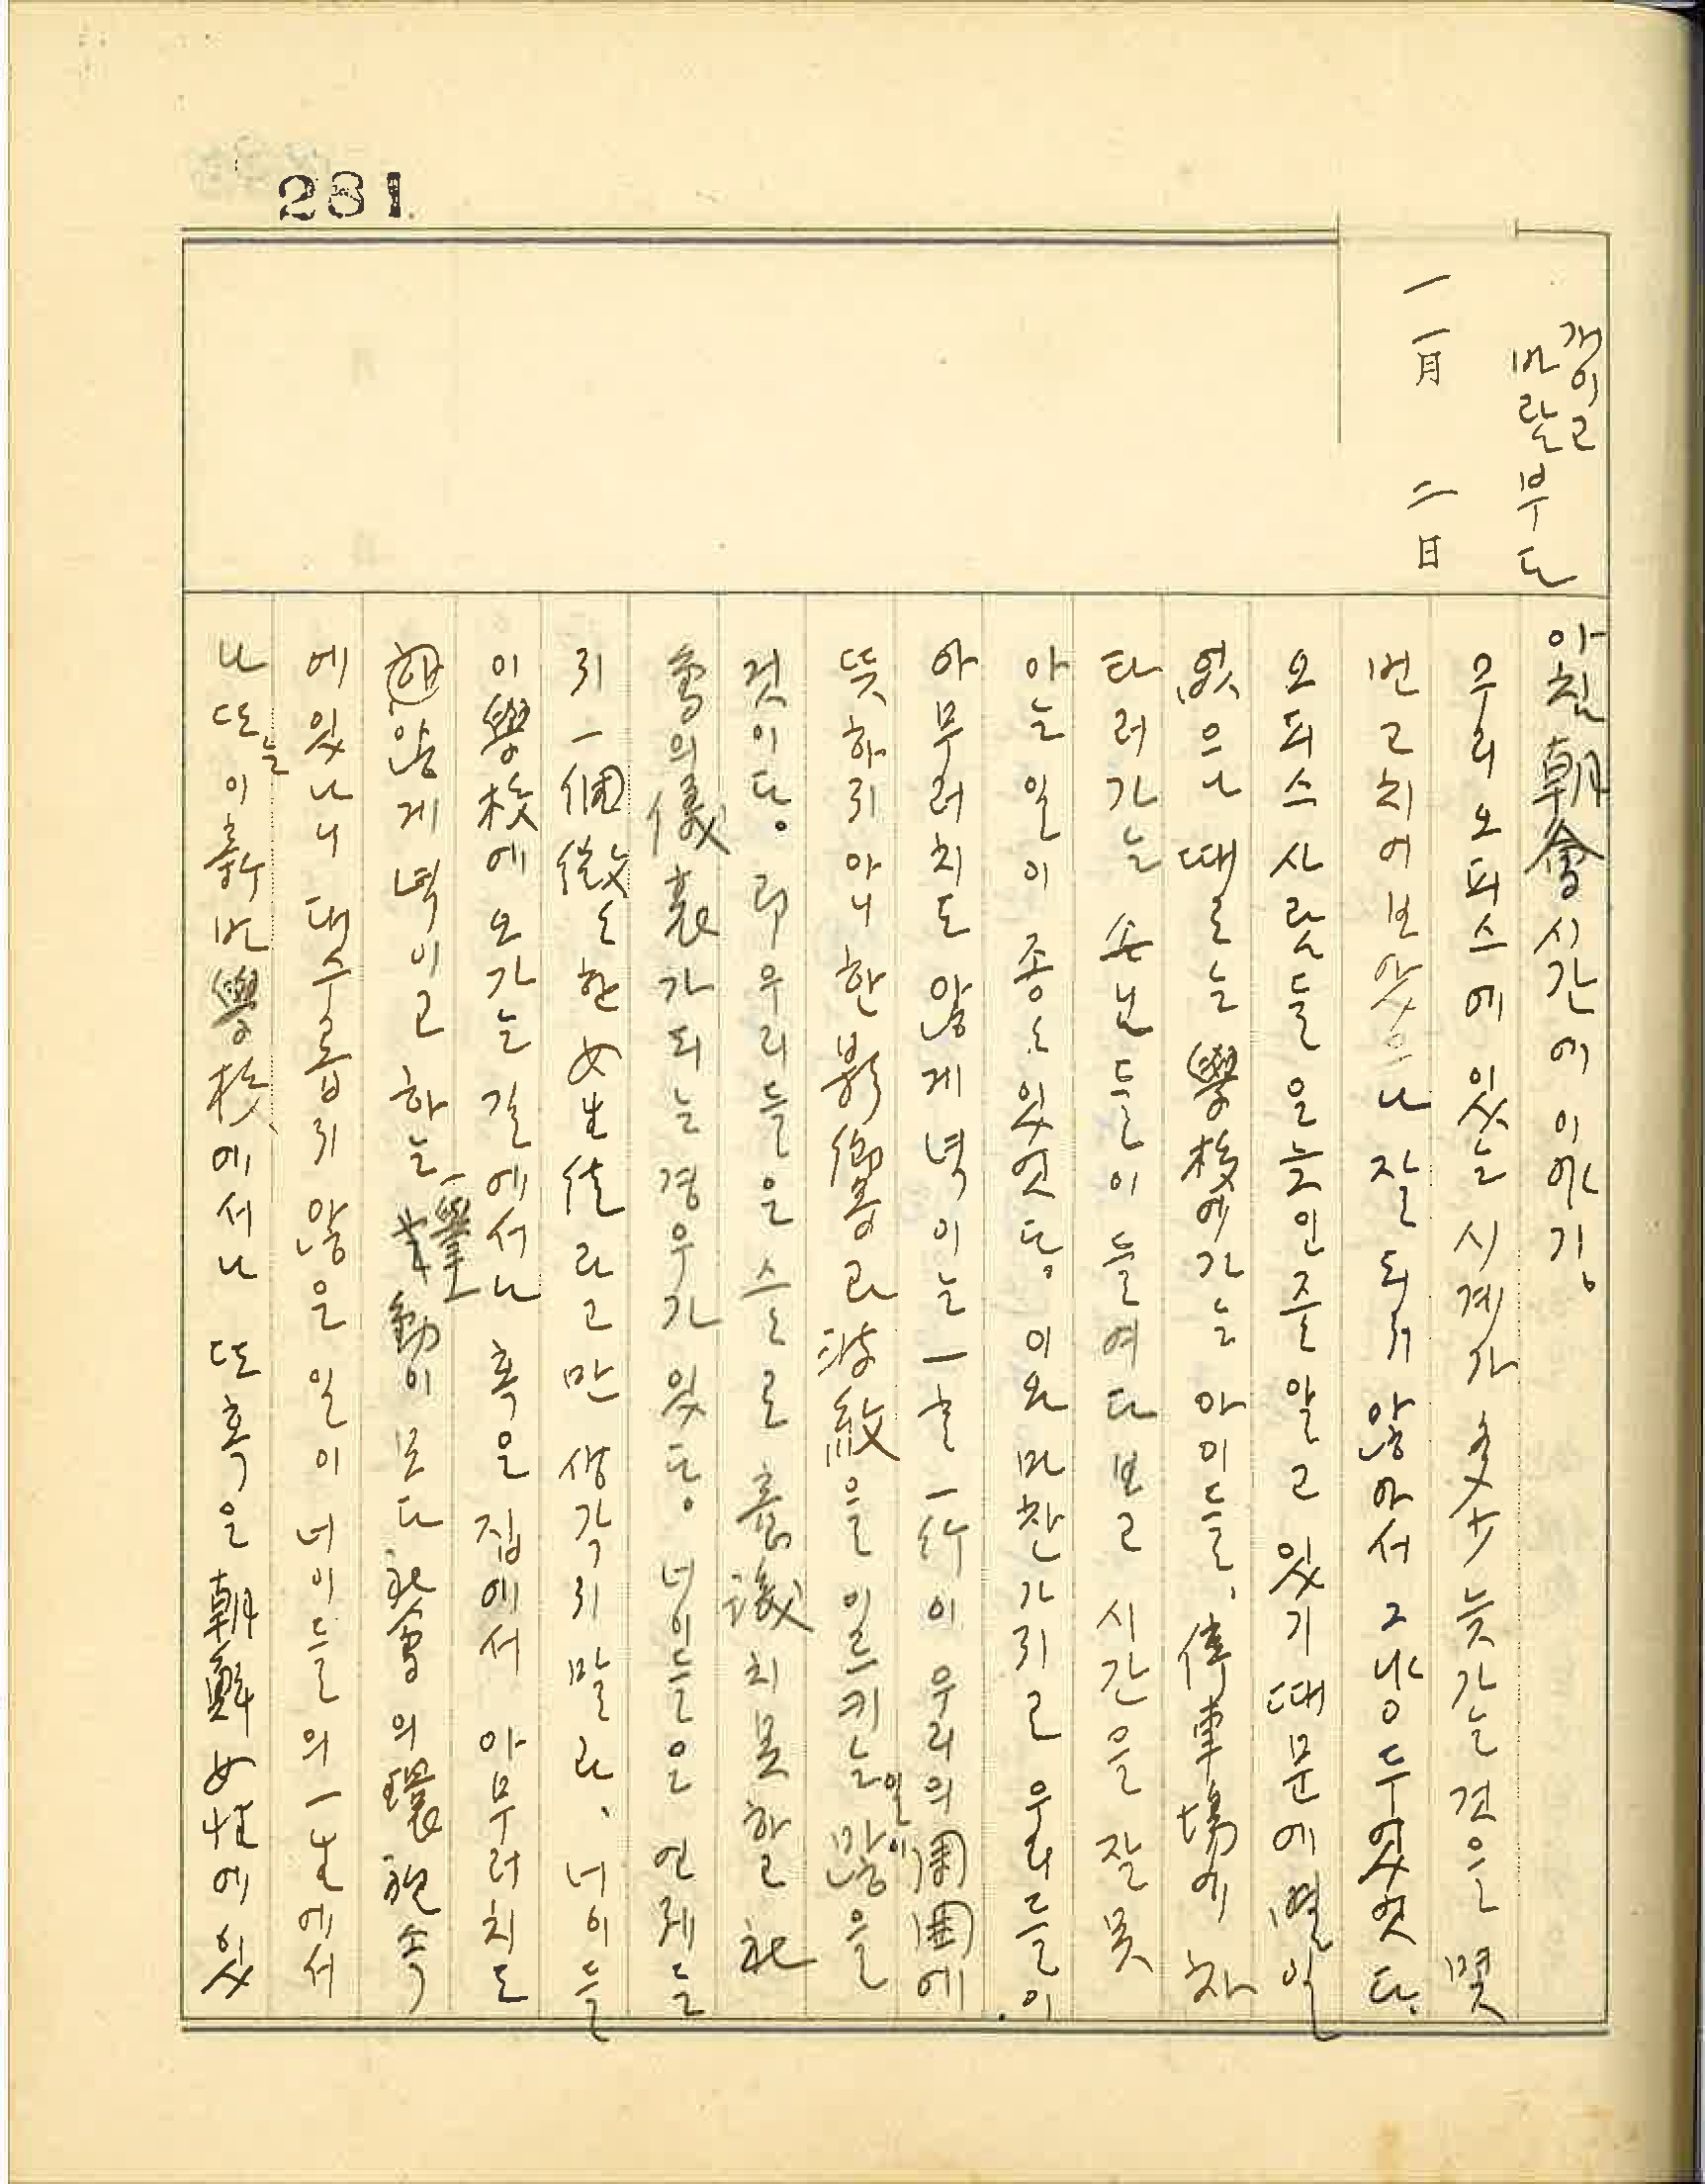 281
개이고
바람부다
一一月 二日
아침 朝會시간에 이야기。
우리 오피스에 있는 시계가 多少 늦가는 것을 몇
번 고치어 보앗으나 잘 되지 않아서 그냥 두엇엇다.
오피스 사람들은 늦인줄 알고 있기 때문에 별일
없으나 때로는 學校에 가는 아이들, 停車場에 차
타러가는 손님들이 늘여다 보고 시간을 잘못
아는 일이 종종 있엇다。 이와 마찬가지로 우리들이
아무러치도 않게 녁이는 一言一行이 우리의 周圍에
뜻하지 아니한 影響과 波紋을 이르키는 일이 많을
것이다。 即 우리들은 스스로 意識치 못할 社
會의 儀表가 되는 경우가 있다。 너이들은 언제든
지 一個 微々한 女生徒라고만 생각지 말라、 너이들
이 學校에 오가는 길에서나 혹은 집에서 아무러치도
않게 녁이고 하는 一擧一動이 모다 社會의 環視 속
에 있나니 대수롭지 않은 일이 너이들의 一生에서
나 또는 이 新 學校에서나 또 혹은 朝鮮女性에 있